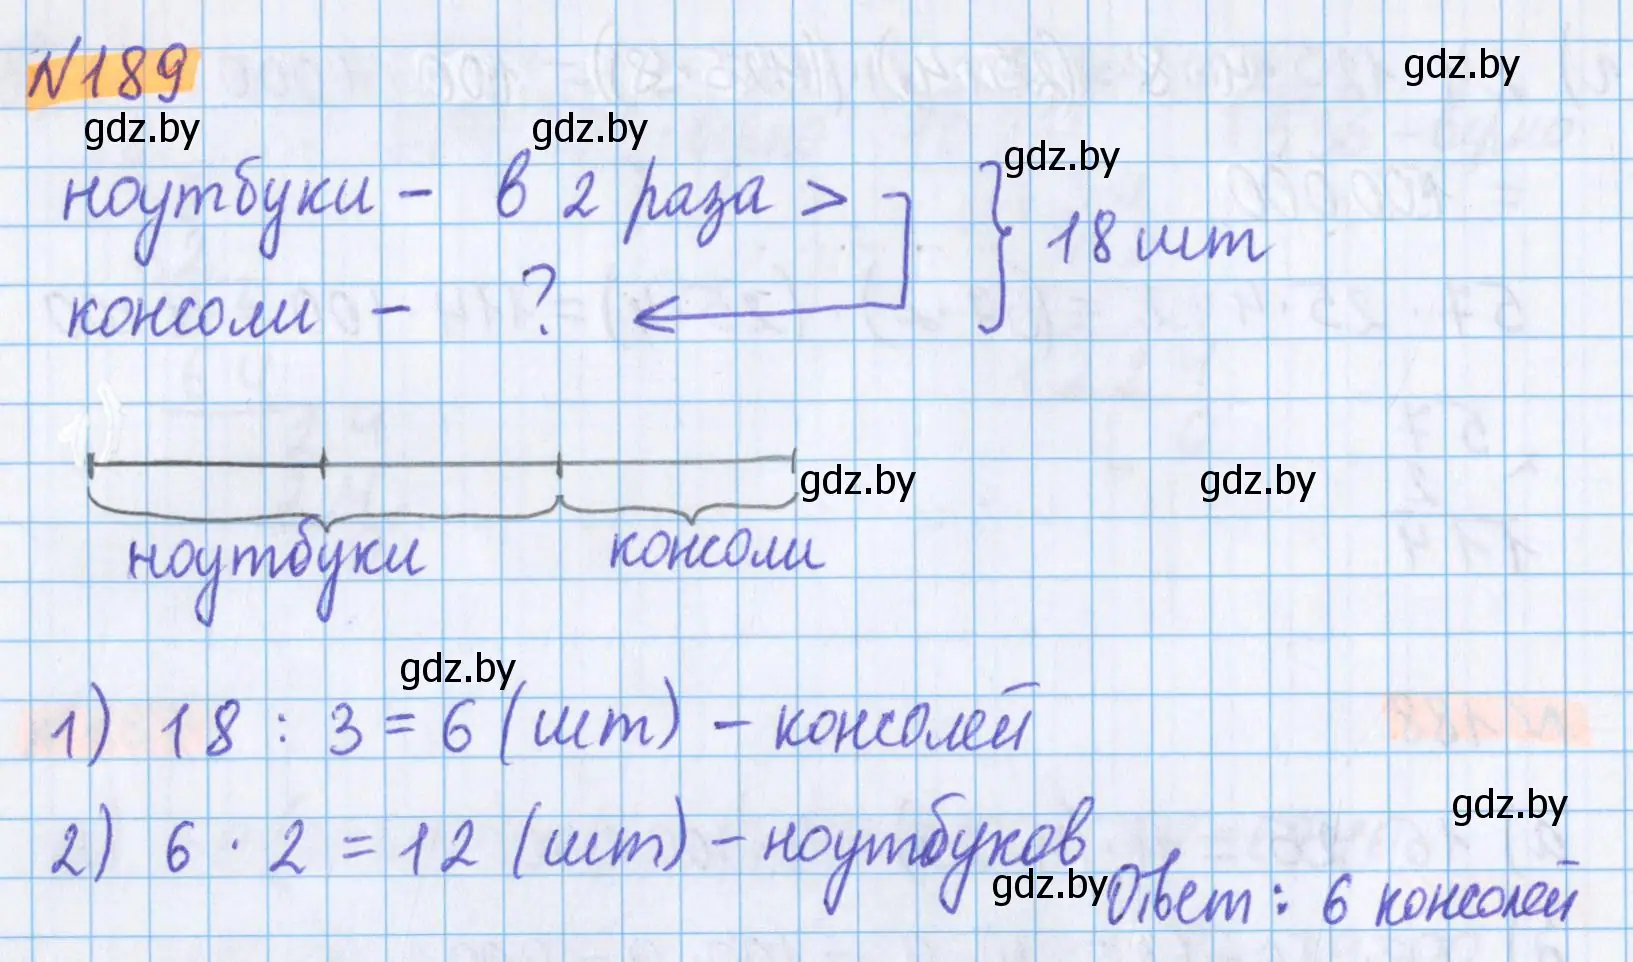 N189
gdz.by
gdz.by
gdz.by
gdz.by
ноутбуки - в 2 раза >
18 шт
консоли - ?
gdz.by
gdz.by
ноутбуки консоли
gdz.by
1) 18 : 3 = 6 (шт) - консолей
gdz.by
2) 6 · 2 = 12 (шт) - ноутбуков
gdz.by
Ответ: 6 консолей